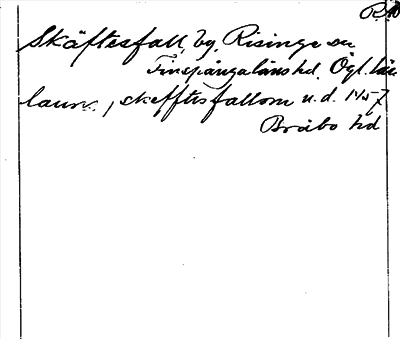 Skäftesfall, by, Risinge sn
Finspångaläns hd. Ögl. län
skefftisfallom u.d. 1457
Bråbo hd